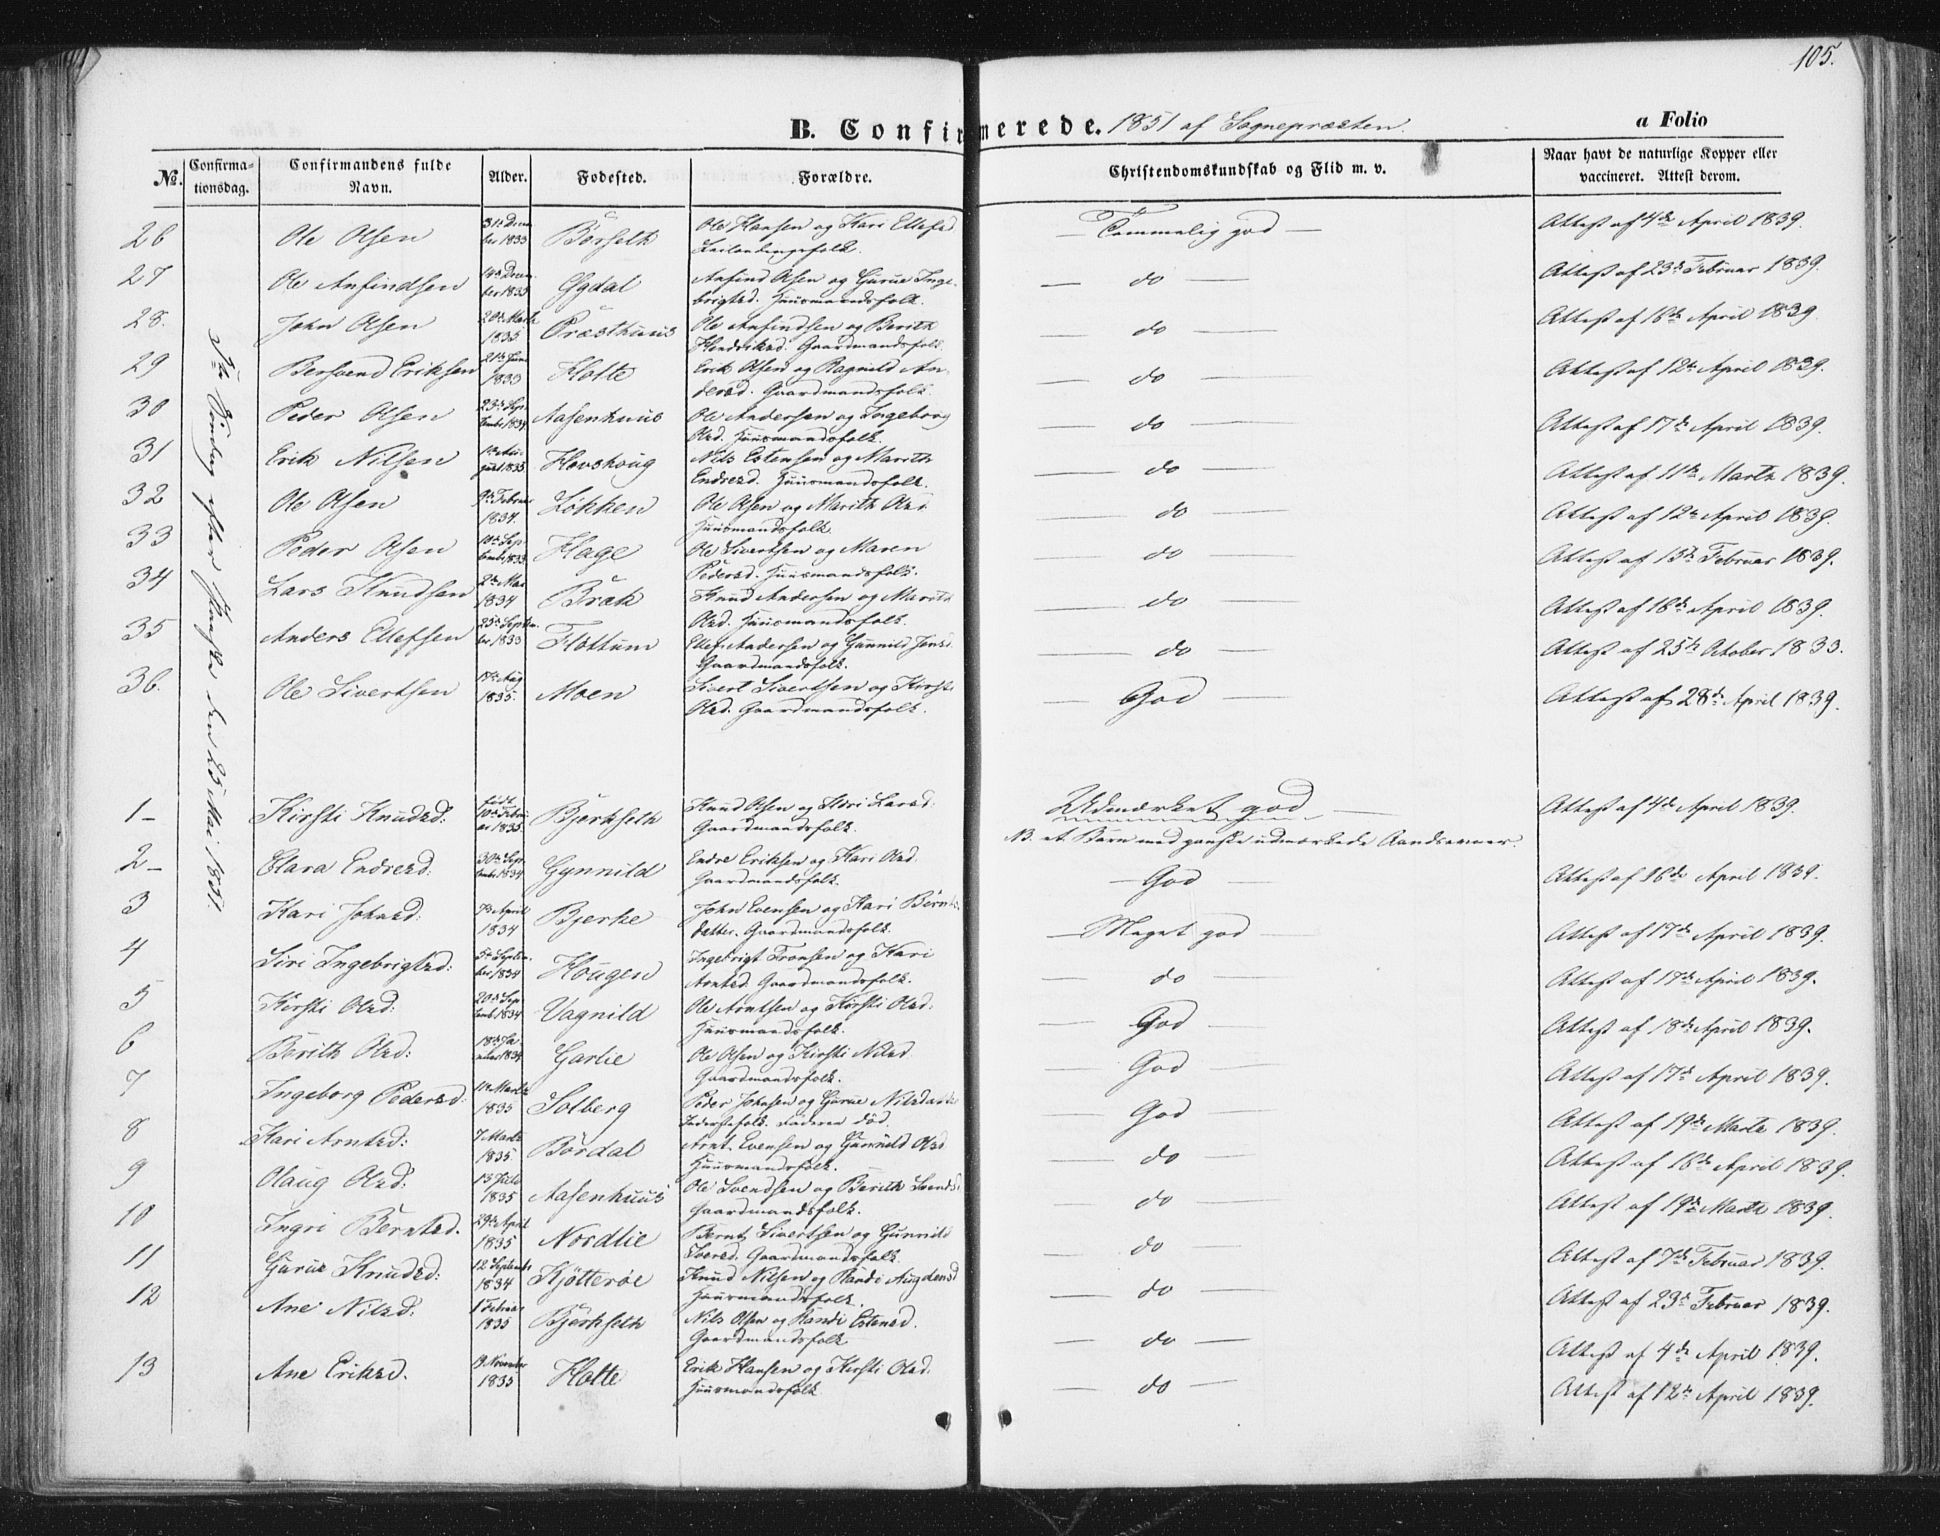 105.
B. Confirmerede. 1851 af Sognepræsten. a Folio
No. Confirma=tionsdag. Confirmandens fulde Navn. Alder. Fødested. Forældre. Christendomskundskab og Flid m. v. Naar havt de naturlige Kopper eller vaccineret. Attest derom.
den 25 Mai 1851
26 Ole Olsen 31te Decem ber 1833 Börseth Ole Hansen og Kari Ellefsd. Leilændingsfolk. Temmelig god Attest af 4de April 1839.
27 Ole Anfindsen ber 1835 Ggdal Anfind Olsen og Gurue Inge brigtsd. Huusmandsfolk. do Attest af 23de Februar 1839.
28. John Olsen 20de Marts 1835 Præsthuus Ole Anfindsen og Berith Hendriksd. Gaardmandsfolk. do Attest af 16de April 1839.
29 Bersvend Eriksen 1833 Hotte Erik Olsen og Ragnild An dersd. Gaardmandsfolk. do Attest af 12te April 1839.
30 Peder Olsen 23de Sep tembr 1834 Aasenhuus Ole Andersen og Ingeborg Olsd. Huusmandsfolk. do Attest af 17de April 1839.
31 Erik Nilsen 1te Au gust 1835 Hovshoug Nils Estensen og Marith Endresd. Huusmandsfolk. do Attest af 11te Martz 1839.
32 Ole Olsen 9de Februar 1834. Løkken Ole Olsen og Marith Olsd. Huusmandsfolk. do Attest af 12te April 1839.
33 Peder Olsen 10de Sep tembr 1833 Hage Ole Sivertsen og Maren Pedersd. Huusmandsfolk. do Attest af 13de Februar 1839.
34 Lars Knudsen 2den Mai 1834 Bræk Knud Andersen og Marith Olsd. Huusmandsfolk. do Attest af 18de April 1839.
35 Anders Ellefsen 25de Septem ber 1833 Flottum Ellef Andersen og Gunnild Jensd. Gaardmandsfolk. do Attest af 25de October 1833.
36. Ole Sivertsen 17de Aug 1835. Moen Sivert Sivertsen og Kirsti Olsd. Gaardmandsfolk. God Attest af 28de April 1839.
1- Kirsti Knudsd: født 10de Febru ar 1835. Bjerkseth Knud Olsen og Larsd: Gaardmandsfolk. Udmærket god Attest af 4de April 1839.
NB. et Barn med ganske udmærkede Aandsevner.
2- Clara Endresd: 30te Sep tembr 1834 Gynnild Endre Eriksen og Kari Olsd. Gaardmandsfolk. God Attest af 16de April 1839.
3 Kari Johnsd: 7de April 1834 Bjerke John Evensen og Kari Börnts datter. Gaardmandsfolk. Meget god Attest af 17de April 1839.
4 Siri Ingebrigtsd: 5te Septem ber 1834 Hougen Ingebrigt Tronsen og Kari Arntsd. Gaardmandsfolk. do Attest af 17de April 1839.
5 Kirsti Olsd: 20de Sep tembr 1834 Vagnild Ole Arntsen og Kirsti Olsd: Huusmandsfolk. God Attest af 18de April 1839.
6 Berith Olsd: 18de Ja nuar 1834 Garlie Ole Olsen og Kirsti Nilsd. Gaardmandsfolk. God Attest af 17de April 1839.
7 Ingeborg Pedersd: Marts 1835 Solberg Peder Johnsen og Gurue Nilsdatter Inderstfolk. Faderen død. God Attest af 19de Marts 1839.
8 Kari Arntsd: 7 Marts 1835 Bördal Arnt Evensen og Gunnild Olsd Huusmandsfolk. do Attest af 16de April 1839.
9 Olaug Olsd: 13 Juli 1835 Aasenhuus Ole Svendsen og Berith Svendsd: Gaardmandsfolk. do Attest af 19de Marts 1839.
10 Ingri Berntsd. 29de April 1835 Nordlie Bernt Sivertsen og Gunnild Iversd. Gaardmandsfolk. do Attest af 7de Februar 1839.
11 Gurue Knudsd: 12 Septembr 1834 Kjötterøe Knud Nilsen og Randi Augdensd Huusmandsfolk. do Attest af 23de Februar 1839.
12 Ane Nilsd: 1 Februar 1835 Bjerkseth Nils Olsen og Randi Estensd. Gaardmandsfolk do Attest af 4de April 1839.
13 Ane Eriksd. 9 November 1835 Hotte Erik Hansen og Kirsti Olsd. Huusmandsfolk do Attest af 12te April 1839.